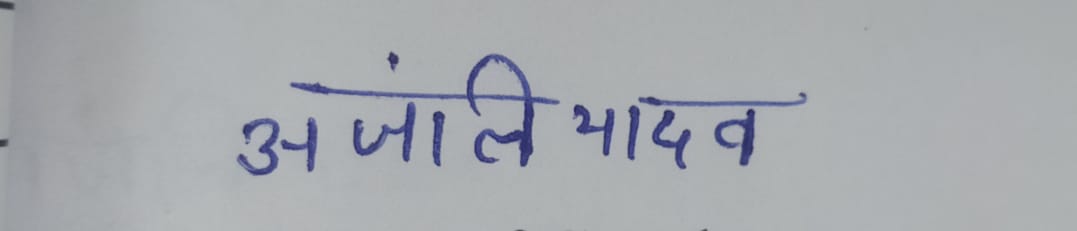 अजांलि यादव